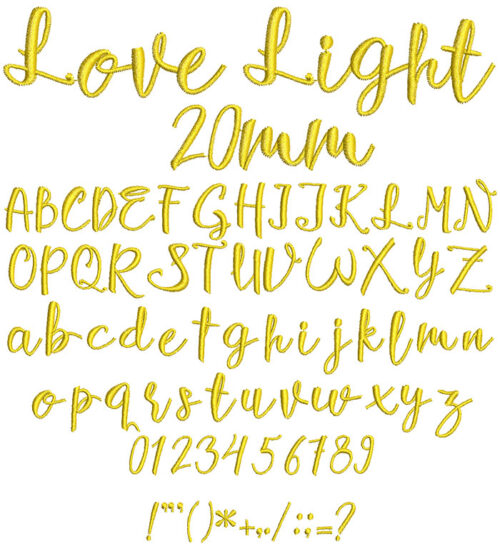 Love Light
20mm
ABCDEFGHIJKLMN
OPQRSTUVWXYZ
abcdefghijklmn
opqrstuvwxyz
0123456789
!"'()*+,./:;=?